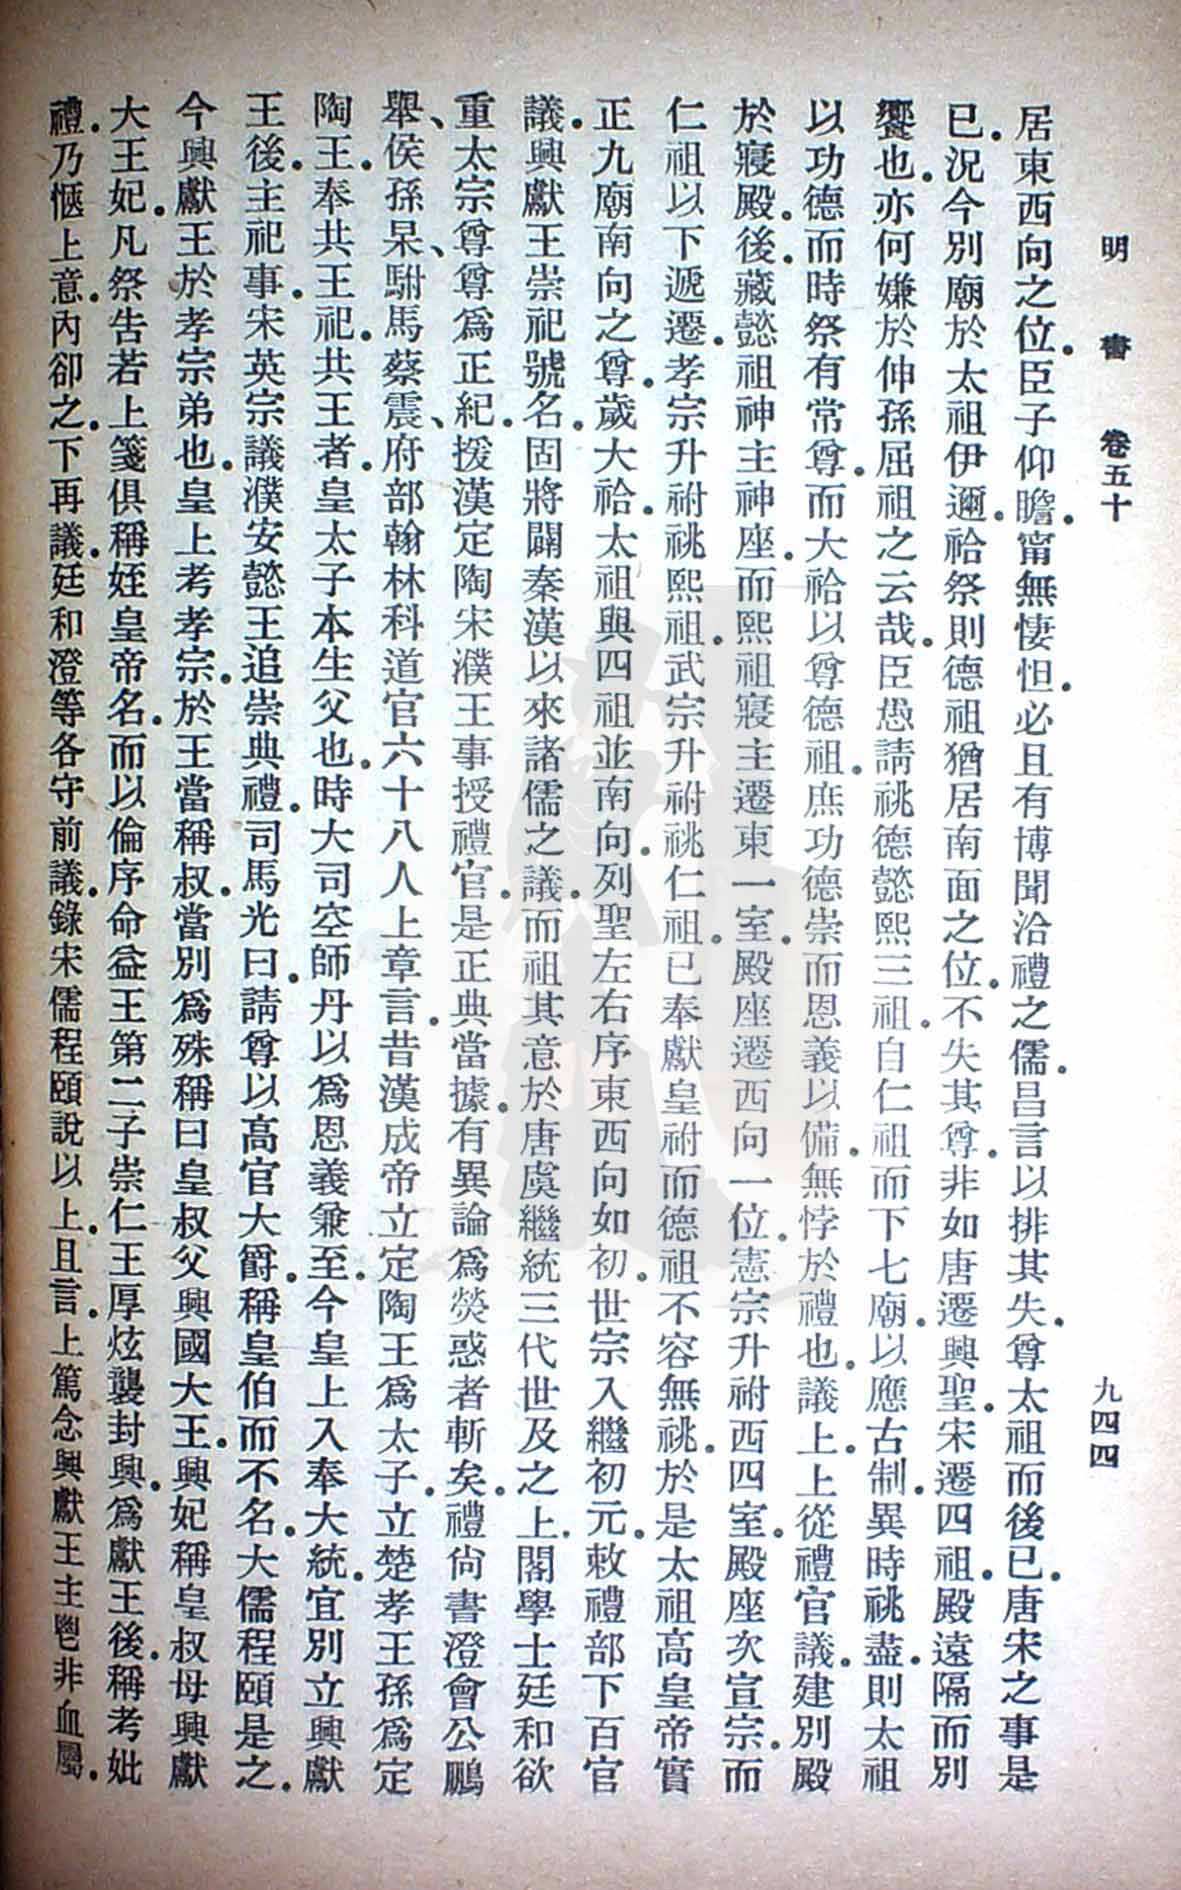 明書 卷五十 九四四
居東西向之位。臣子仰瞻。甯無悽怛。必且有博聞洽禮之儒。昌言以排其失。尊太祖而後已。唐宋之事是
已。況今別廟於太祖伊邇。祫祭則德祖猶居南面之位。不失其尊。非如唐遷興聖。宋遷四祖。殿遠隔而別
饗也。亦何嫌於伸孫屈祖之云哉。臣愚請祧德懿熙三祖。自仁祖而下七廟。以應古制。異時祧盡。則太祖
以功德而時祭有常尊。而大祫以尊德祖。庶功德崇而恩義以備。無悖於禮也。議上。上從禮官議。建別殿
於寢殿。後。藏懿祖神主神座。而熙祖寢主遷東一室。殿座遷西向一位。憲宗升祔西四室。殿座次宣宗。而
仁祖以下遞遷。孝宗升祔祧熙祖。武宗升祔。祧仁祖。已奉獻皇祔而德祖不容無祧。於是太祖高皇帝實
正九廟南向之尊。歲大祫。太祖與四祖並南向。列聖左右序東西向如初。世宗入繼初元。敕禮部下百官
議。興獻王崇祀號名。固將闢秦漢以來諸儒之議。而祖其意於唐虞繼統三代世及之上。閣學士廷和欲
重太宗尊尊爲正紀。援漢定陶宋濮王事授禮官。是正典當據。有異論爲熒惑者斬矣。禮尙書澄會公鵬
舉、侯孫杲、駙馬蔡震、府部翰林科道官六十八人上章言。昔漢成帝立定陶王爲太子。立楚孝王孫爲定
陶王。奉共王祀。共王者。皇太子本生父也。時大司空師丹以爲恩義兼至。今皇上入奉大統。宜別立興獻
王後。主祀事。宋英宗議濮安懿王追崇典禮。司馬光曰。請尊以高官大爵。稱皇伯而不名。大儒程頤是之。
今興獻王於孝宗弟也。皇上考孝宗。於王當稱叔。當別爲殊稱曰皇叔父興國大王。興妃稱皇叔母興獻
大王妃。凡祭告若上箋俱稱姪皇帝名。而以倫序命益王第二子崇仁王厚炫襲封興。爲獻王後。稱考妣
禮乃愜上意。內卻之。下再議。廷和澄等各守前議。錄宋儒程頤說以上。且言。上篤念興獻王主鬯非血屬。